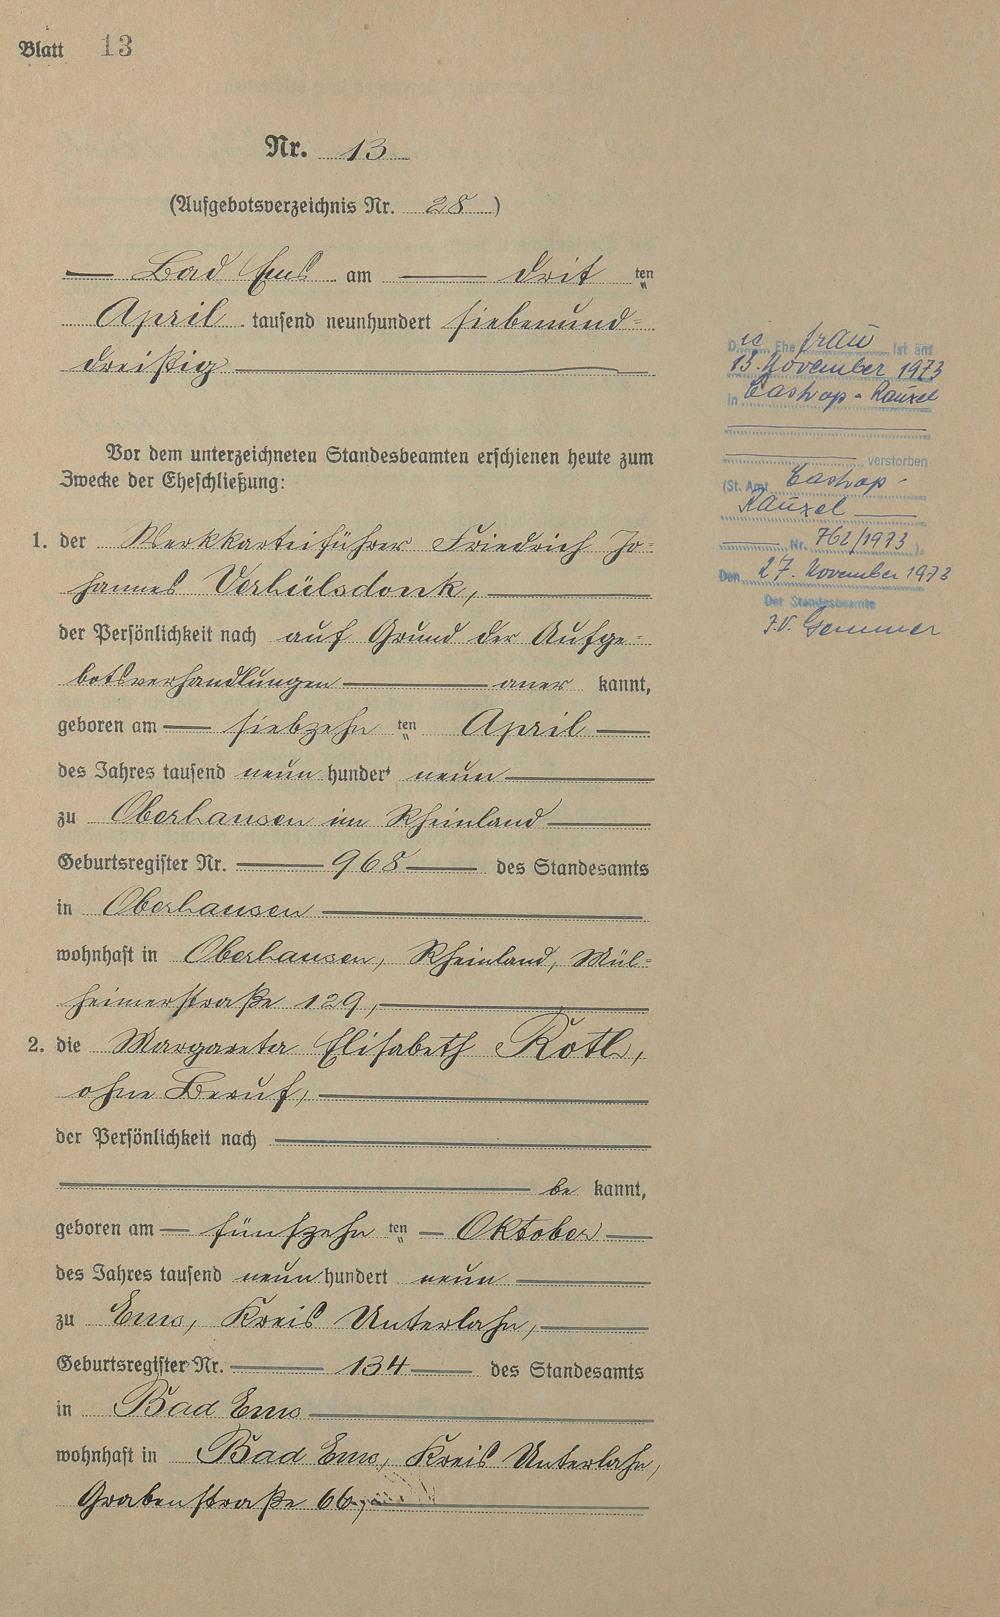 Blatt 13
Nr. 13
(Aufgebotsverzeichnis Nr. 28)
Bad Ems am drit ten
April tausend neunhundert siebenund-
dreißig
Vor dem unterzeichneten Standesbeamten erschienen heute zum
Zwecke der Eheschließung:
1. der Werkkarteiführer Friedrich Jo-
hannes Verhülsdonk,
der Persönlichkeit nach auf Grund der Aufge-
botsverhandlungen aner kannt,
geboren am siebzehn ten April
des Jahres tausend neun hundert neun
zu Oberhausen im Rheinland
Geburtsregister Nr. 968 des Standesamts
in Oberhausen
wohnhaft in Oberhausen, Rheinland, Mül-
heimerstraße 129,
2. die Margareta Elisabeth Roth,
ohne Beruf,
der Persönlichkeit nach
be kannt,
geboren am fünfzehn ten Oktober
des Jahres tausend neun hundert neun
zu Ems, Kreis Unterlahn,
Geburtsregister Nr. 134 des Standesamts
in Bad Ems
wohnhaft in Bad Ems, Kreis Unterlahn,
Grabenstraße 66,
Die Ehefrau ist am
13. November 1973
in Castrop-Rauxel
verstorben
(St. Amt Castrop-
Rauxel
Nr. 762/1973).
Den 27. November 1973
Der Standesbeamte
J.V.